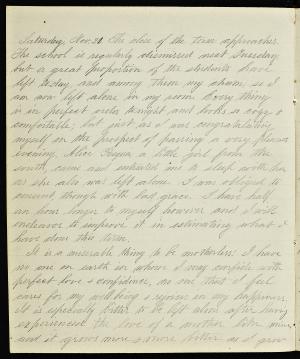 Saturday, Nov. 21. The close of the term approaches.
The school is regularly dismissed next Tuesday
but a great proportion of the students have
left today and among them my chum, so I
am now left alone in my room. Every thing
is in perfect order tonight and looks so cozy &
comfortable, but just as I was congratulating
myself on the prospect of passing a very pleasant
evening, Alice, a little girl from the
south, came and entreated me to sleep with her
as she also was left alone. I was obliged to
consent, though with bad grace. I have half
an hour longer to myself however and I will
endeavor to improve it in estimating what I
have done this term.
It is a miserable thing to be motherless: I have
no one on earth in whom I may confide with
perfect love & confidence, no one that I feel
cares for my well being & rejoices in my happiness.
It is specially bitter to be left alone after having
experienced the love of a mother like mine,
and it grows more & more bitter as I grow